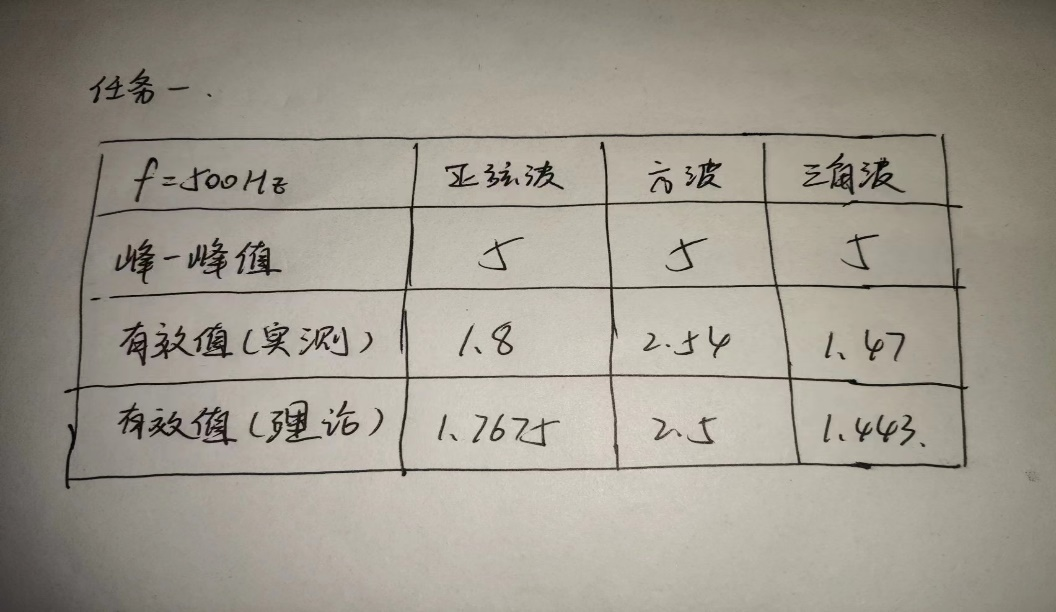 任务一.
f=500Hz 正弦波 方波 三角波
峰-峰值 5 5 5
有效值(实测) 1.8 2.54 1.47
有效值(理论) 1.7675 2.5 1.443.